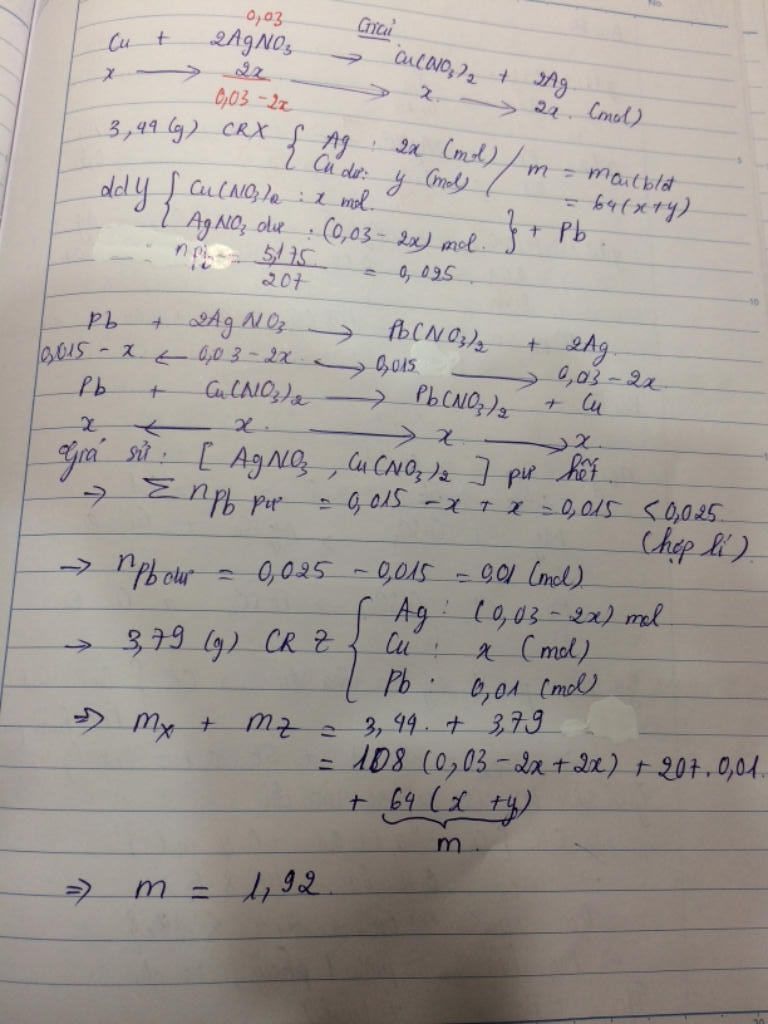 Giải
0,03
Cu + 2AgNO3 → Cu(NO3)2 + 2Ag
x → 2x → x → 2x (mol)
0,03-2x
3,44 (g) CRX { Ag : 2x (mol) / m = mCu(bđ
Cu dư: y (mol) = 64(x+y)
ddY { Cu(NO3)2 : x mol.
AgNO3 dư : (0,03 - 2x) mol. } + Pb
nPb = 5,175 / 207 = 0,025.
Pb + 2AgNO3 → Pb(NO3)2 + 2Ag
0,015 - x ← 0,03 - 2x → 0,015 → 0,03 - 2x
Pb + Cu(NO3)2 → Pb(NO3)2 + Cu
x ← x → x → x.
Giả sử: [ AgNO3 , Cu(NO3)2 ] pư hết.
→ Σ nPb pư = 0,015 - x + x = 0,015 < 0,025
(hợp lí)
→ nPb dư = 0,025 - 0,015 = 0,01 (mol)
→ 3,79 (g) CR Z { Ag : (0,03 - 2x) mol
Cu : x (mol)
Pb : 0,01 (mol)
⇒ mX + mZ = 3,44 + 3,79
= 108 (0,03 - 2x + 2x) + 207.0,01
+ 64 (x + y)
m
⇒ m = 1,92.